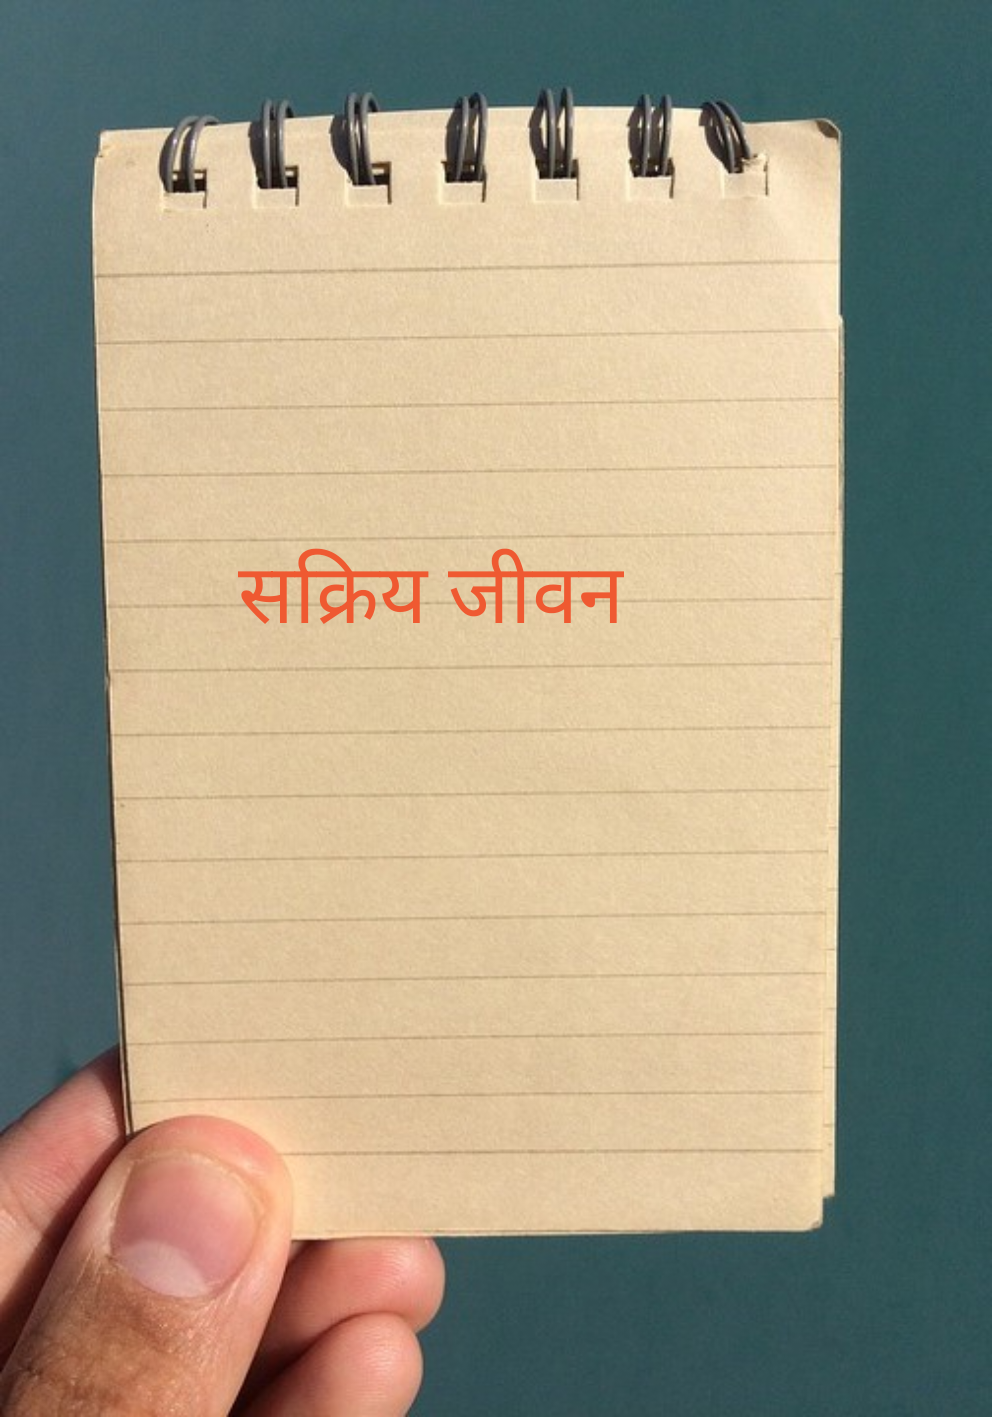 सक्रिय जीवन